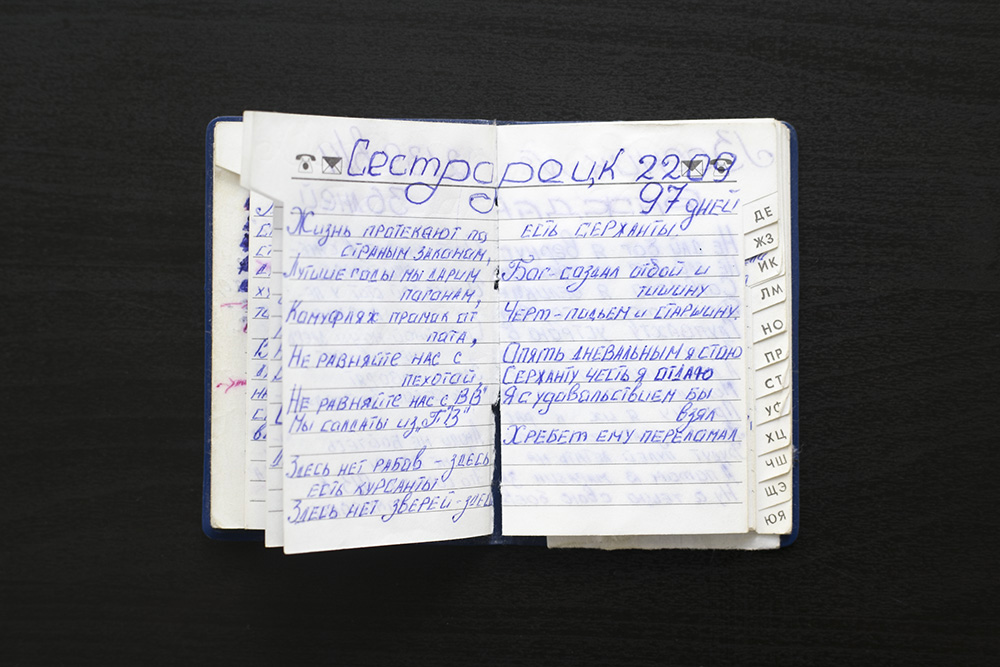 Сестрорецк 2209
97 дней
Жизнь протекают по
страным законам,
Лутшие годы мы дарим
паганам,
Камуфляж промак от
пота,
Не равняйте нас с
пехотай,
Не равняйте нас с "ВВ"
Мы салдаты из "ПВ"
Здесь нет рабов - здесь
есть курсанты
Здесь нет зверей - здес
есть серханты,
Бог - создал отбой и
тишину
Черт - подьем и старшину.
Опять дневальным я стою
Серханту честь я отдаю
Я с удавольствием бы
взял
Хребет ему переломал
ДЕ
ЖЗ
ИК
ЛМ
НО
ПР
СТ
УФ
ХЦ
ЧШ
ЩЭ
ЮЯ